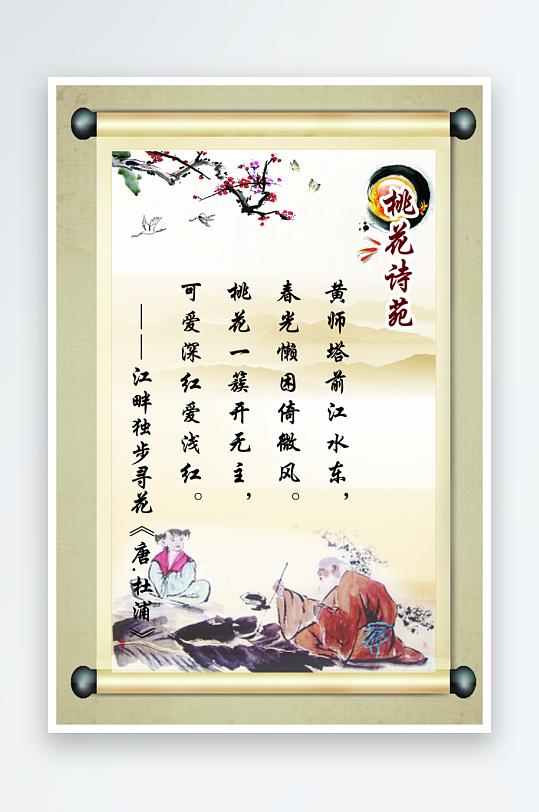 桃花诗苑
黄师塔前江水东，
春光懒困倚微风。
桃花一簇开无主，
可爱深红爱浅红。
——江畔独步寻花《唐·杜浦》